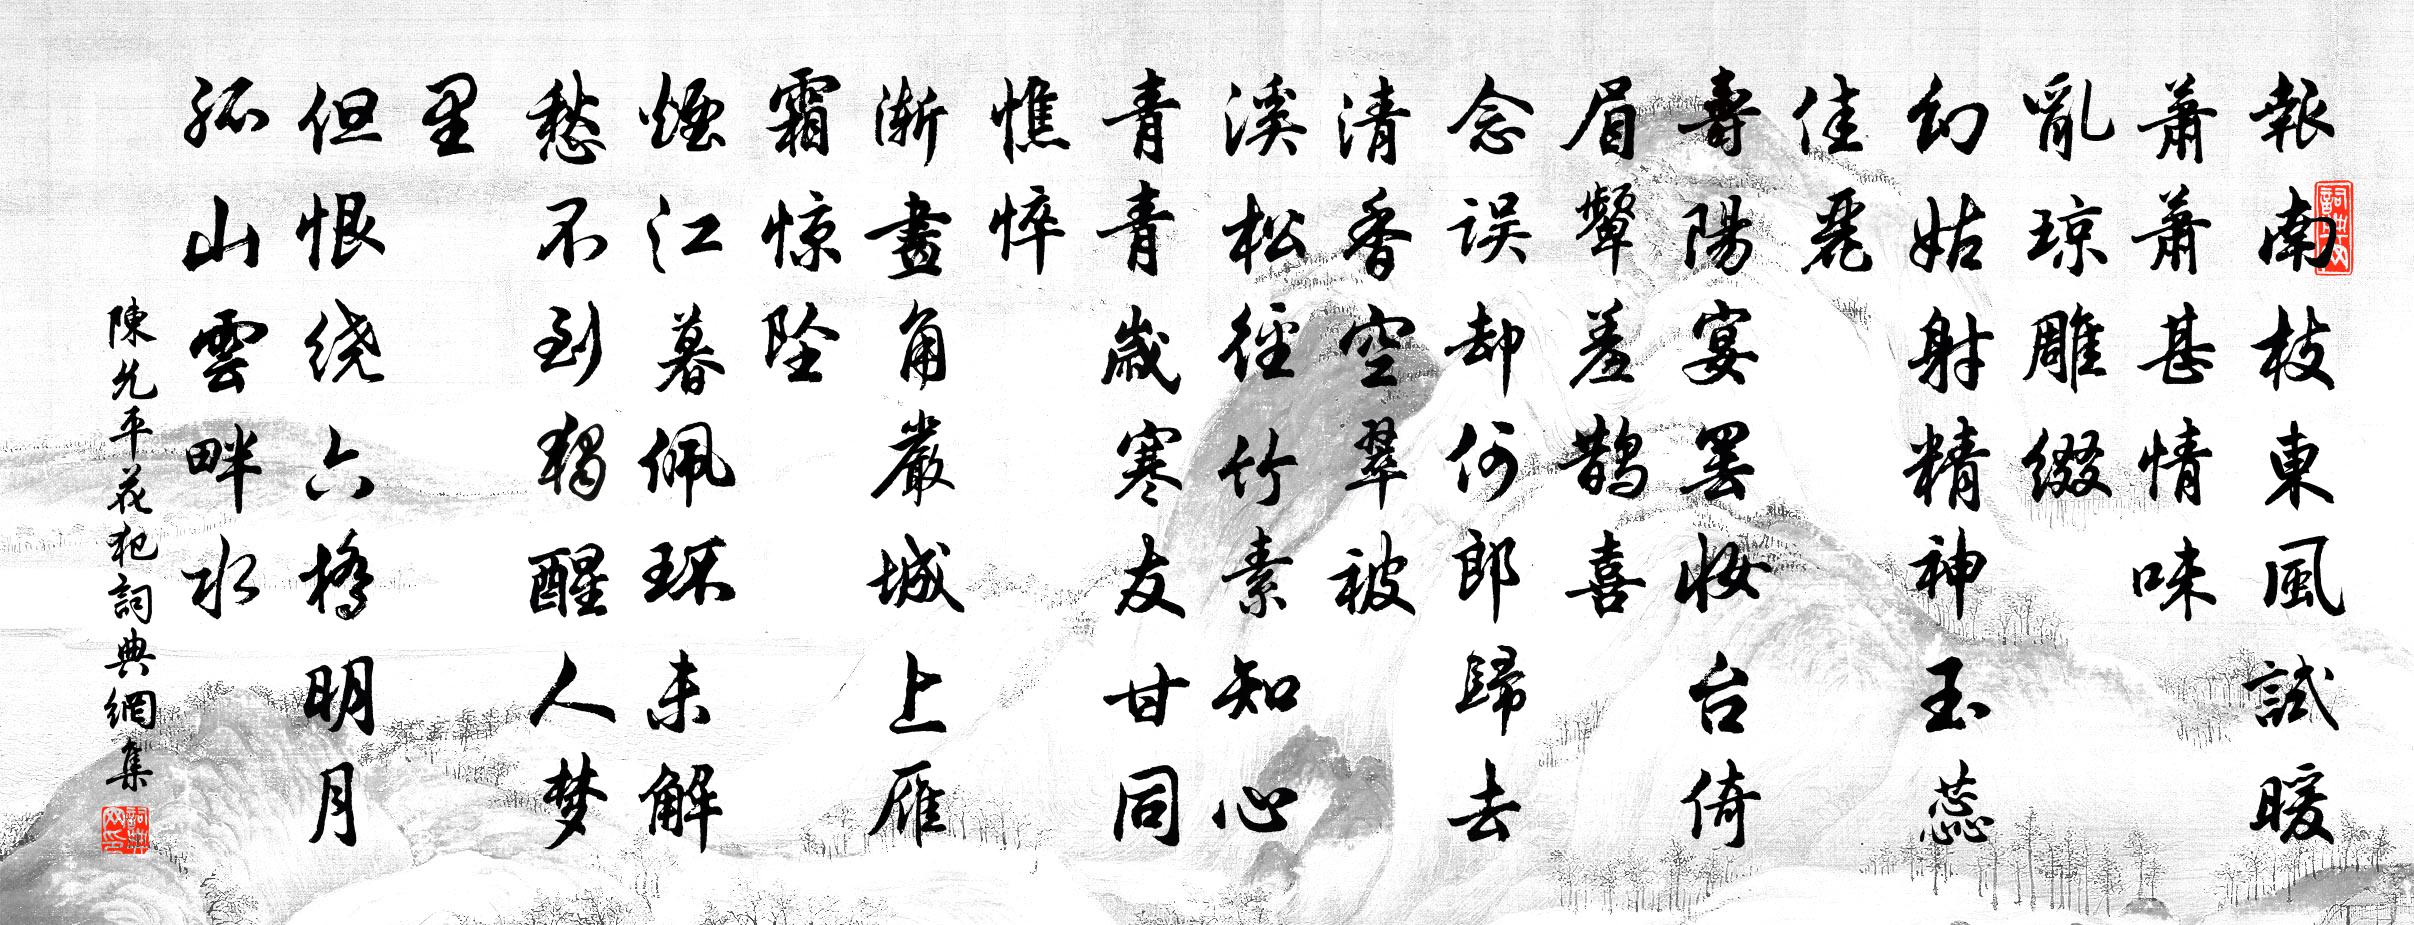 報南枝東風試暖
蕭蕭甚情味
亂琼雕缀
幻姑射精神玉蕊
佳麗
壽陽宴罢妆台倚
眉顰羞鹊喜
念误却何郎歸去
清香空翠被
溪松徑竹素知心
青青歲寒友甘同
憔悴
漸畫角嚴城上雁
霜惊坠
煙江暮佩环未解
愁不到獨醒人梦
里
但恨绕六橋明月
孤山雲畔水
陳允平花犯詞典網集